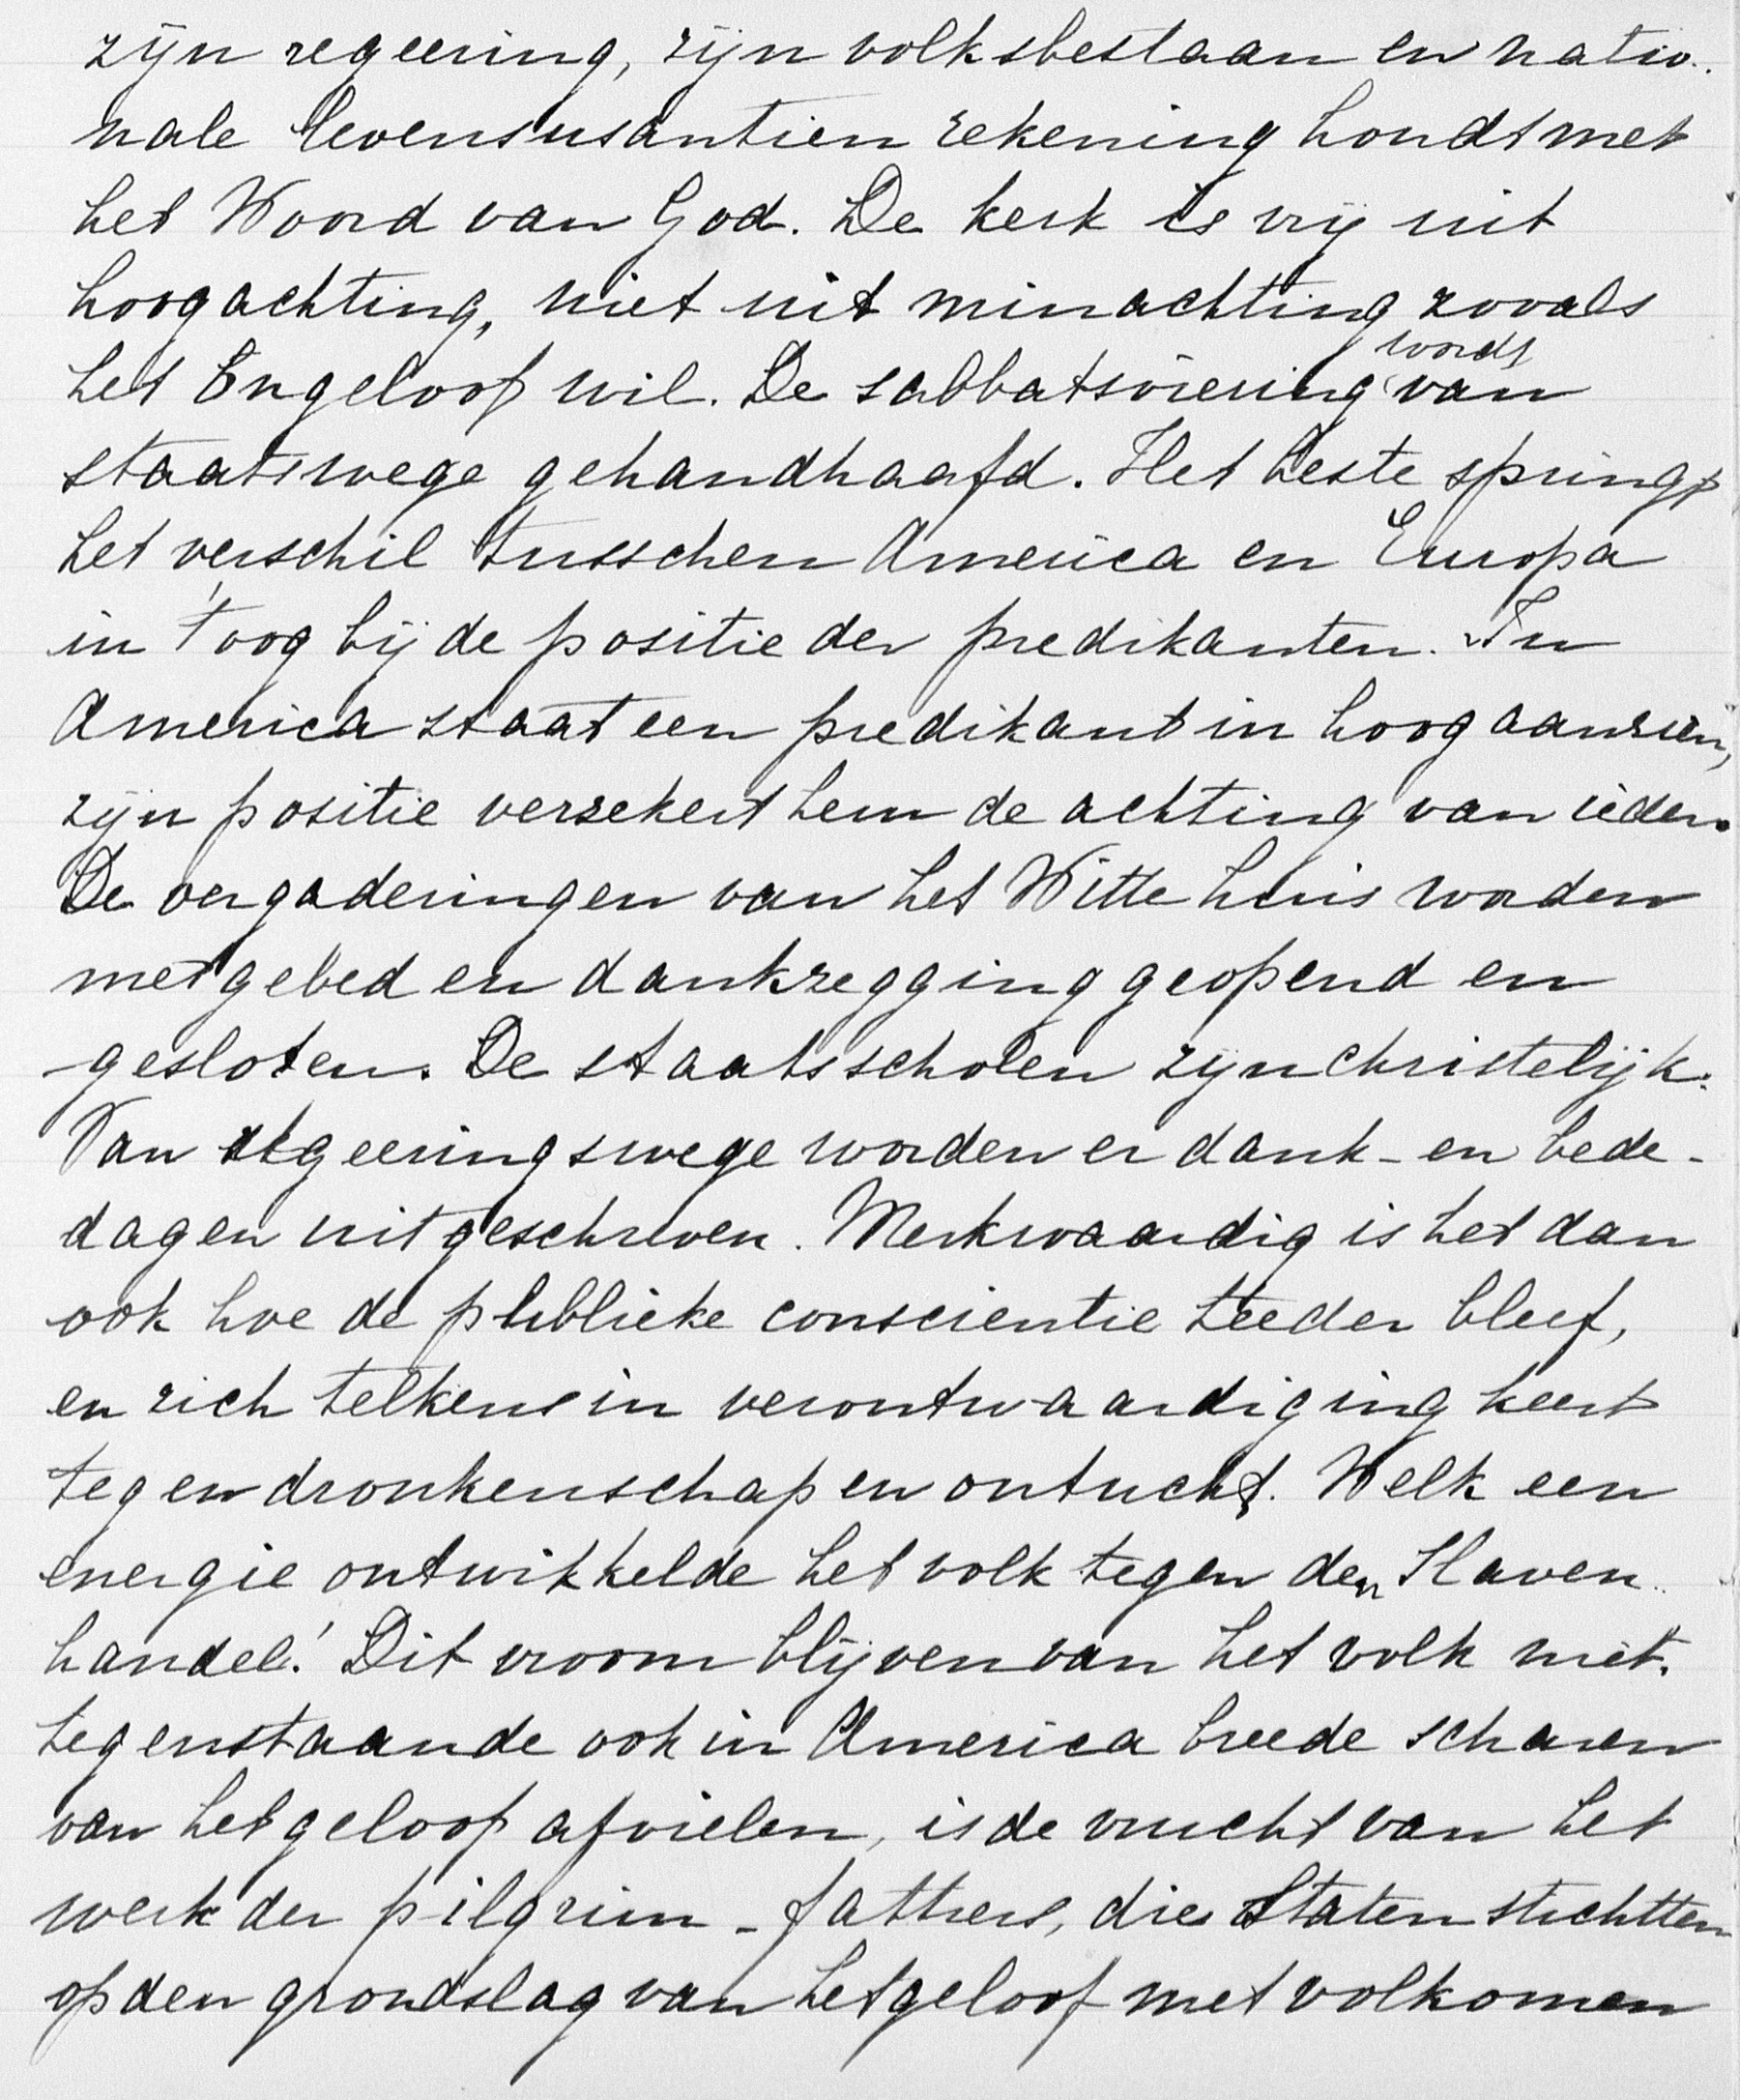 zijn regeering, zijn volksbestaan en natio-
nale levensusantien rekening houdt met
het Woord van God. De kerk is vrij uit
hoogachting, niet uit minachting zooals
het Ongeloof wil. De sabbatsviering wordt van
staatswege gehandhaafd. Het beste springt
het verschil tusschen America en Europa
in 't oog bij de positie der predikanten. In
America staat een predikant in hoog aanzien,
zijn positie verzekert hem de achting van ieder.
De vergaderingen van het Witte huis worden
met gebed en dankzegging geopend en
gesloten. De staatsscholen zijn christelijk.
Van regeeringswege worden er dank- en bede-
dagen uitgeschreven. Merkwaardig is het dan
ook hoe de publieke conscientie teeder bleef,
en zich telkens in verontwaardiging keert
tegen dronkenschap en ontucht. Welk een
energie ontwikkelde het volk tegen den Slaven-
handel! Dit vroom blijven van het volk niet-
tegenstaande ook in America breede scharen
van het geloof afvielen, is de vrucht van het
werk der pilgrim-fathers, die Staten stichtten
op den grondslag van het geloof met volkomen